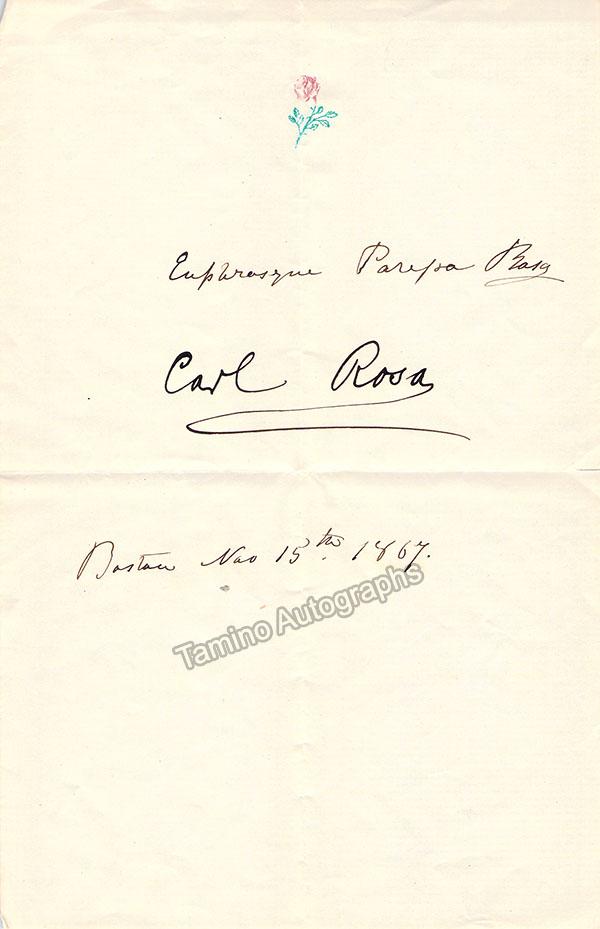 Euphrosyne Parepa Rosa
Carl Rosa
Boston Nov 15th 1867.
Tamino Autographs